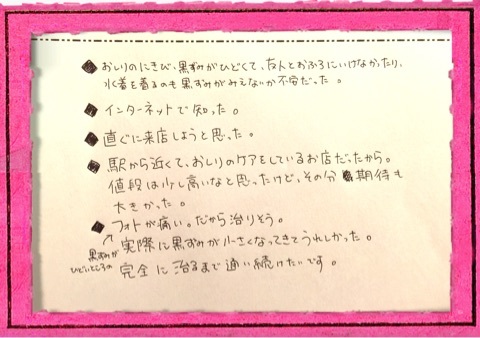 ◆ おしりのにきび、黒ずみがひどくて、友人とおふろにいけなかったり、
水着を着るのも黒ずみがみえないか不安だった。
◆ インターネットで知った。
◆ 直ぐに来店しようと思った。
◆ 駅から近くて、おしりのケアをしているお店だったから。
値段は少し高いなと思ったけど、その分期待も
大きかった。
◆ フォトが痛い。だから治りそう。
↑
黒ずみが
ひどいところの
実際に黒ずみが小さくなってきてうれしかった。
完全に治るまで通い続けたいです。